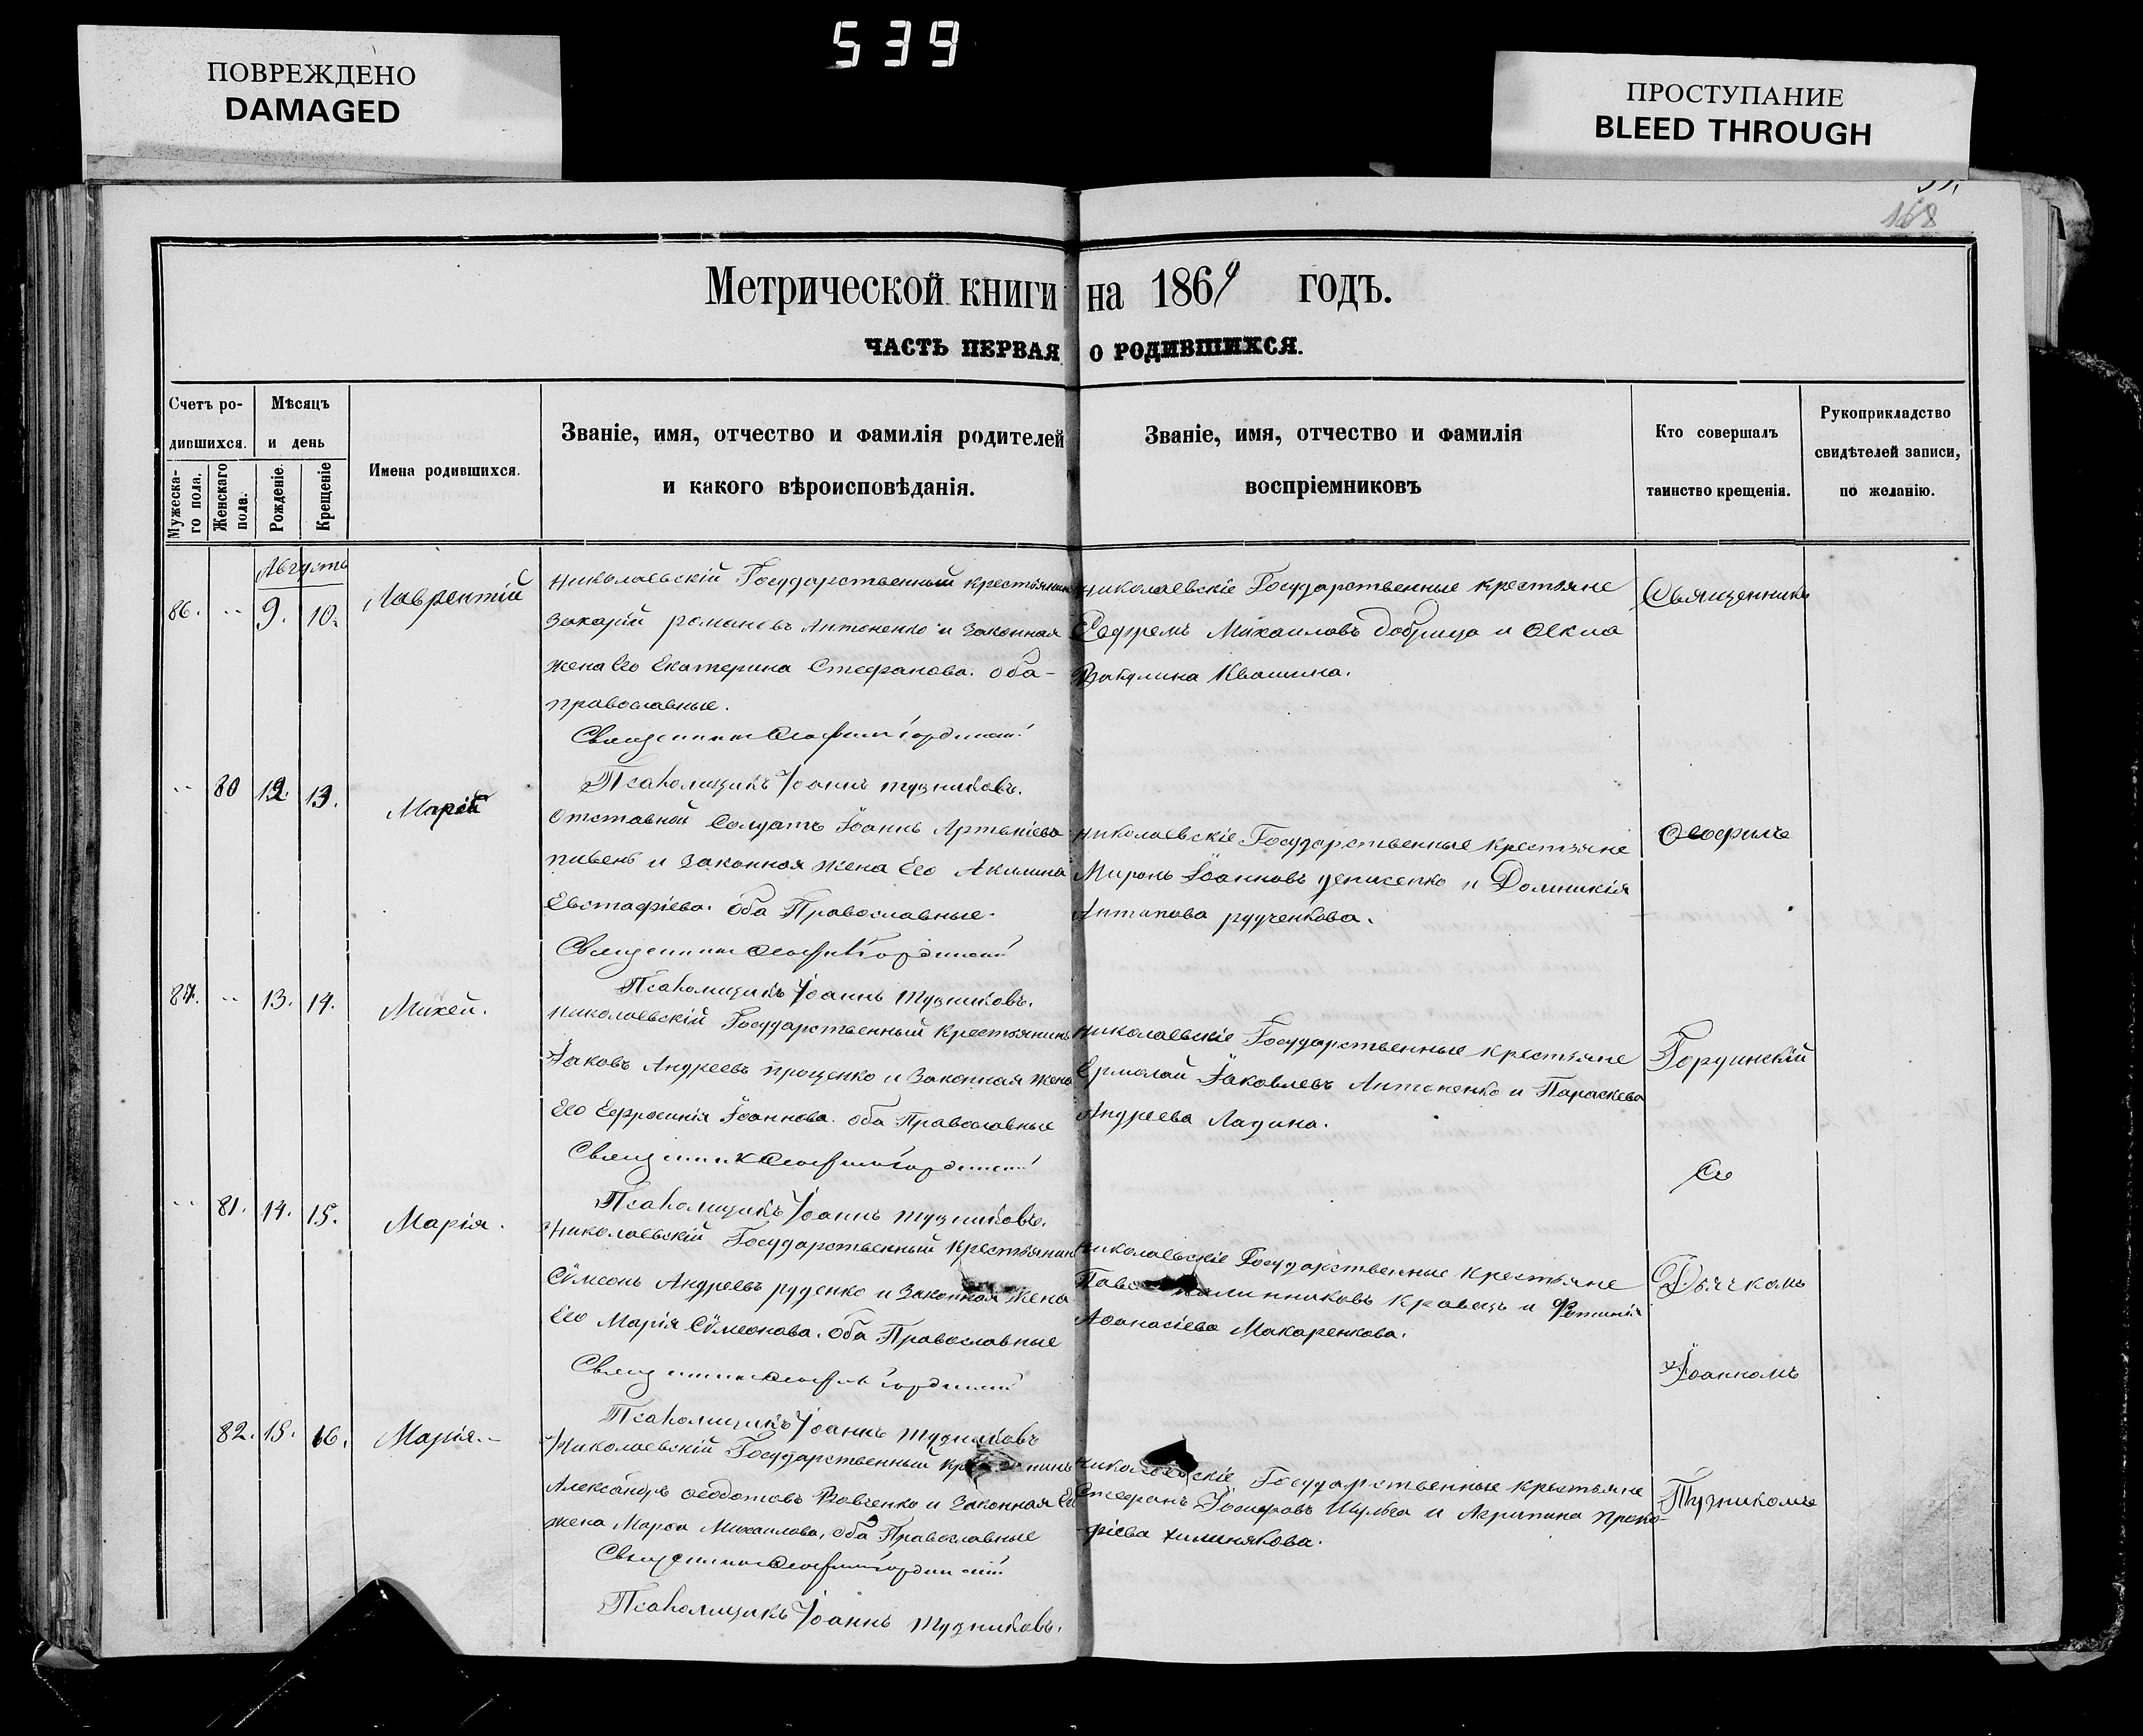 539
ПОВРЕЖДЕНО
DAMAGED
ПРОСТУПАНИЕ
BLEED THROUGH
168
Метрической книги на 1864 годъ.
ЧАСТЬ ПЕРВАЯ О РОДИВШИХСЯ.
Счетъ ро-
дившихся.
Мужеска-
го пола.
Женскаго
пола.
Мѣсяцъ
и день
Рожденіе.
Крещеніе
Имена родившихся.
Званіе, имя, отчество и фамилія родителей
и какого вѣроисповѣданія.
Званіе, имя, отчество и фамилія
воспріемниковъ
Кто совершалъ
таинство крещенія.
Рукоприкладство
свидѣтелей записи,
по желанію.
Августъ
86. 9. 10. Лаврентій
Николаевскій Государственный крестьянинъ
Захарій Романовъ Антоненко и Законная
жена Его Екатерина Стефанова. оба-
православные.
Священникъ Ѳеофилъ Гординскій
Псаломщикъ Іоаннъ Тузниковъ.
Николаевскіе Государственные крестьяне
Ефремъ Михаиловъ Добрица и
Вакулина Квашина.
80 12. 13. Марія
Отставной Солдатъ Іоаннъ
пивень и Законная жена Его Акилина
Евстафіева. оба Православные.
Священникъ Ѳеофилъ Гординскій
Псаломщикъ Іоаннъ Тузниковъ.
Николаевскіе Государственные крестьяне
Миронъ Іоанновъ денисенко и Домникія
Антипова рудченкова.
87. 13. 14. Михей.
Николаевскій Государственный Крестьянинъ
Іаковъ Андреевъ проценко и Законная жена
Его Ефросинія Іоаннова. оба Православные
Священникъ Ѳеофилъ Гординскій
Псаломщикъ Іоаннъ Тузниковъ.
Николаевскіе Государственные крестьяне
Ермолай Іаковлевъ Антоненко и Параскева
Андреева Ладина.
81. 14. 15. Марія.
Николаевскій Государственный Крестьянинъ
Сѵмеонъ Андреевъ руденко и Законная жена
Его Марія Сѵмеонова. оба Православные
Священникъ Ѳеофилъ Гординскій
Псаломщикъ Іоаннъ Тузниковъ
Николаевскіе Государственные Крестьяне
Кравецъ и Фотинія
Аѳанасіева Макаренкова.
82. 15. 16. Марія.-
Николаевскій Государственный
Александръ Ѳеодотовъ Вовченко и Законная Его
жена Марѳа Михаилова, оба Православные
Священникъ Ѳеофилъ Гординскій
Псаломщикъ Іоаннъ Тузниковъ.
Государственные крестьяне
Стефанъ Іосифовъ Шульга и Агрипина Проко-
фіева
Священникъ
Ѳеофилъ
Гординскій
Съ
Дьячкомъ
Іоанномъ
Тузниковымъ